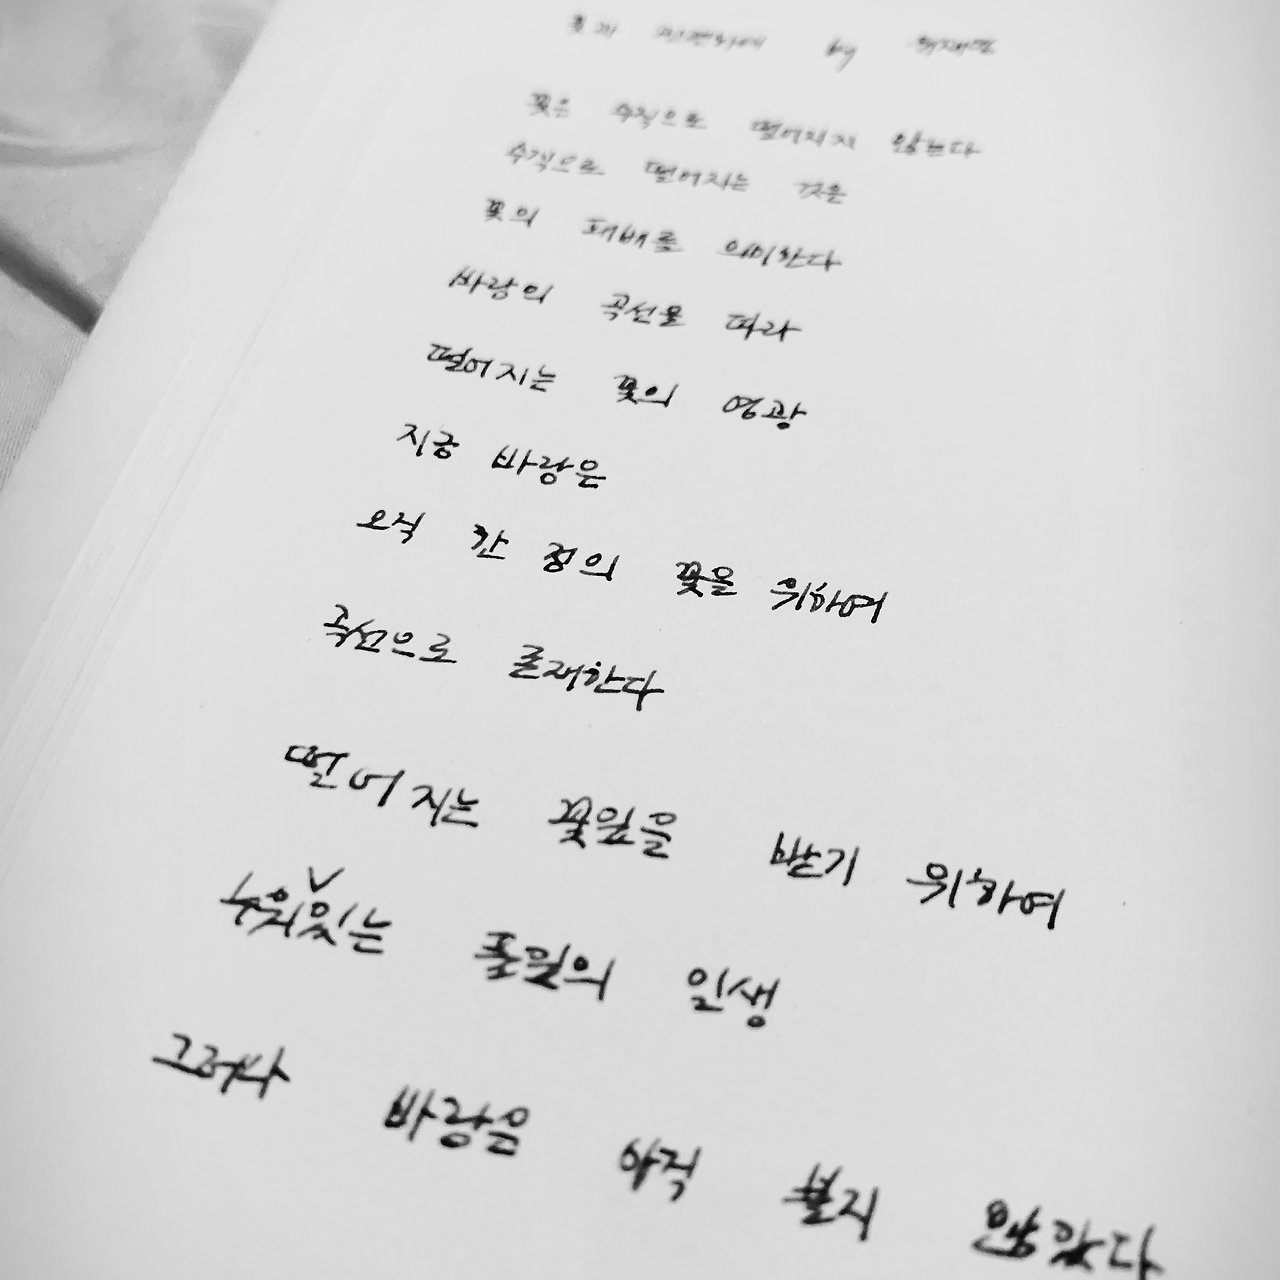 꽃의 by
꽃은 수직으로 떨어지지 않는다
수직으로 떨어지는 것은
꽃의 패배를 의미한다
바람의 곡선을 따라
떨어지는 꽃의 영광
지금 바람은
오직 한 점의 꽃을 위하여
곡선으로 존재한다
떨어지는 꽃잎을 받기 위하여
누워있는 풀잎의 인생
그러나 바람은 아직 불지 않았다